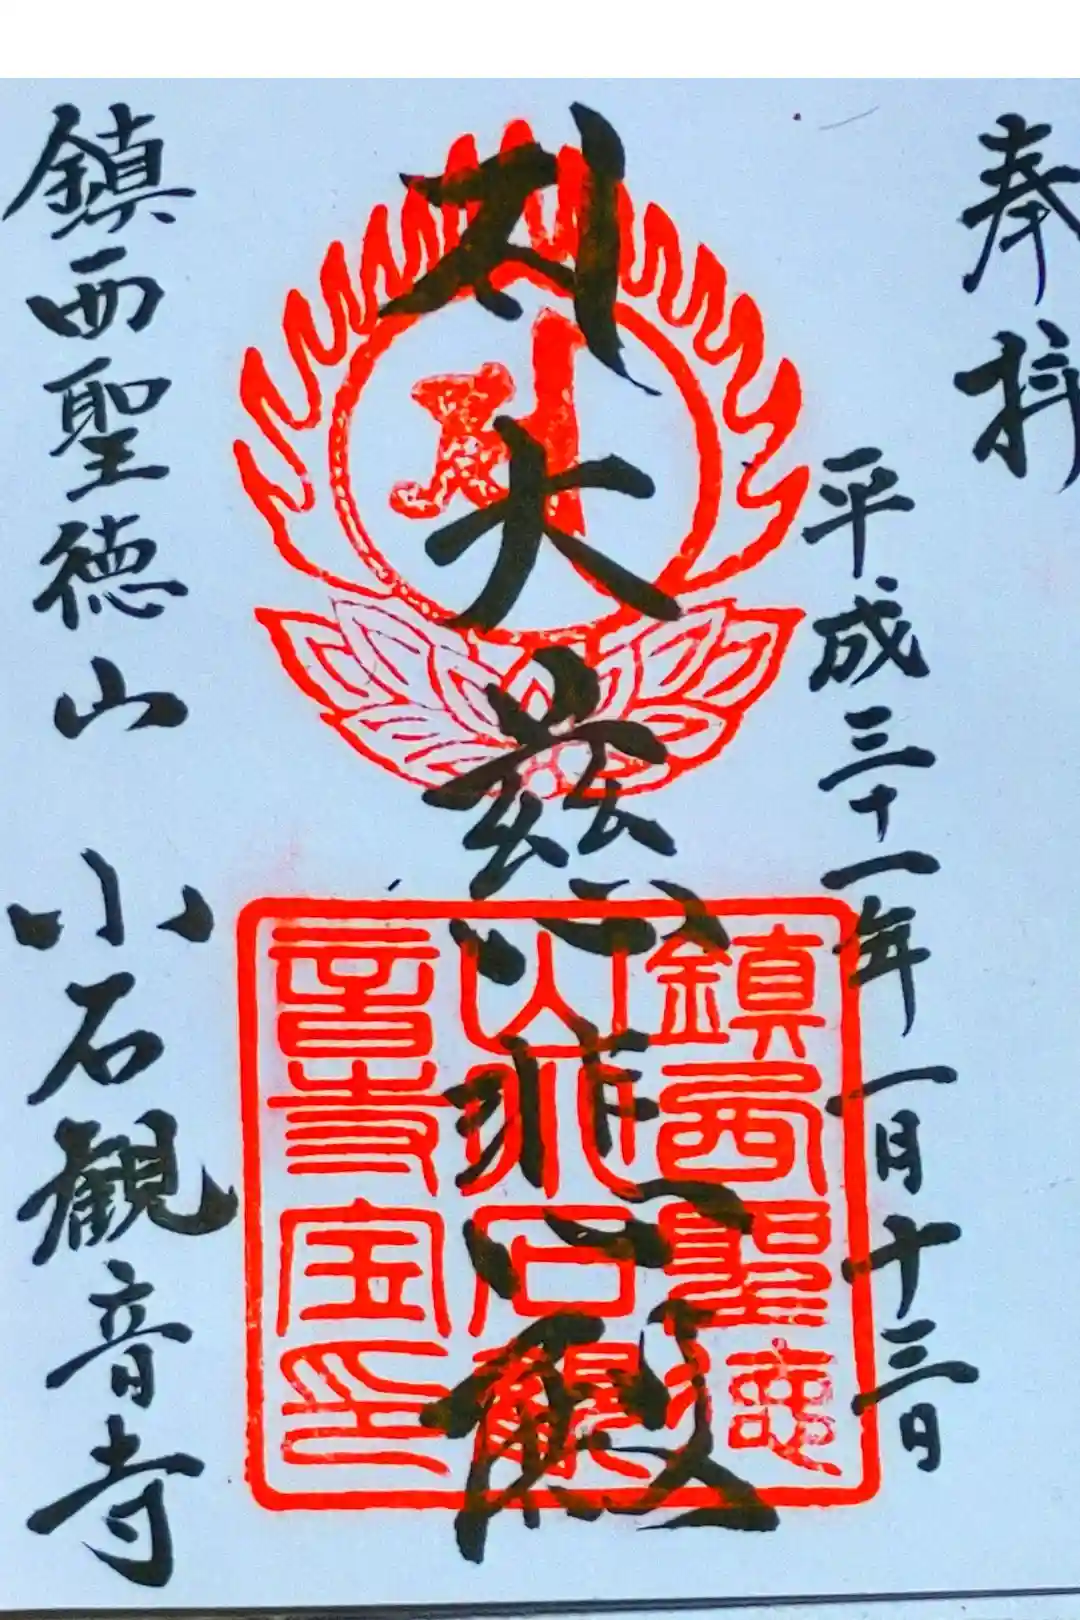 奉拝
平成三十一年一月十三日
大慈悲殿
鎮西聖徳山 小石観音寺
鎮西聖徳
山小石観
音寺宝印